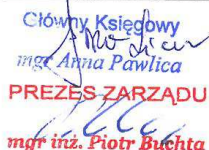 Główny Księgowy
mgr Anna Pawlica
PREZES ZARZĄDU
mgr inż. Piotr Buchta